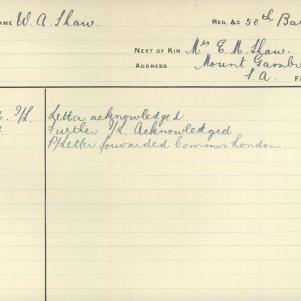 NAME W. A. Shaw. REG. &C 50th Ba
NEXT OF KIN Mrs E. M. Shaw.
ADDRESS Mount Gambi
S.A.
I/L. Letter acknowledged.
Further I/L. Acknowledged
P/Letter forwarded Commrs London.